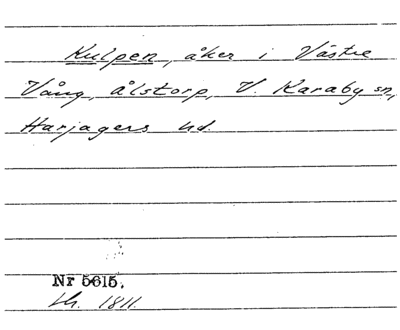 Kulpen, åker i Västre
Vång, Ålstorp, V. Karaby sn,
Harjagers hd.
Nr 5615.
1811.